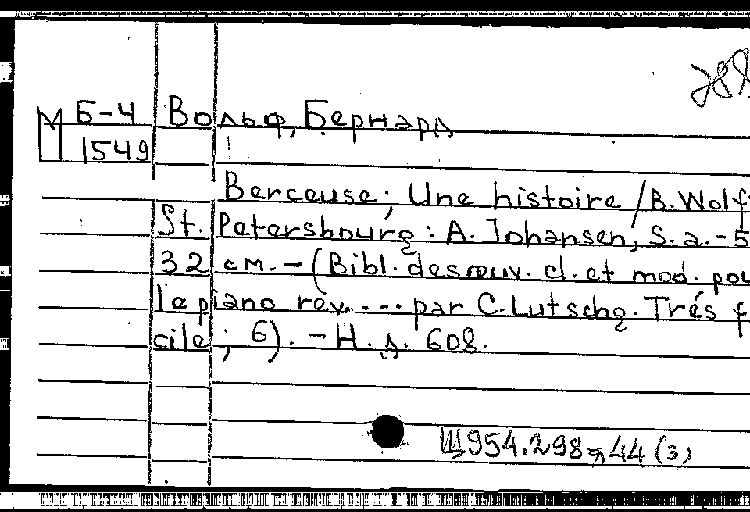 М Б-4 Вольф, Бернард
1549
Berceuse; Une histoire / B. Wolf
St. Petersbourg: A. Johansen, S. a. - 5
32 см. - (Bibl. des œuv. cl. et mod. pou
le piano rev. ... par C. Lutschg. Trés f
cile; 6). - Н. д. 608.
Щ954.298-44 (3)